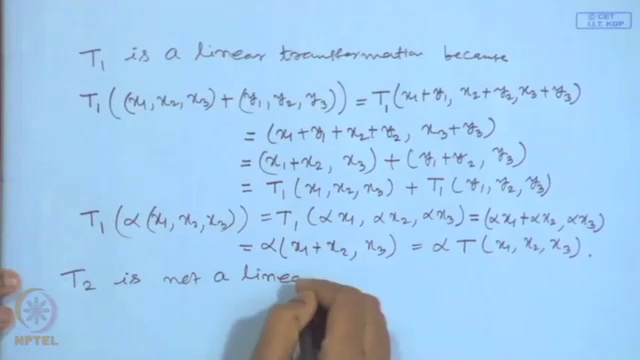 © CET
I.I.T. KGP
T₁ is a linear transformation because
T₁((x₁, x₂, x₃) + (y₁, y₂, y₃)) = T₁(x₁+y₁, x₂+y₂, x₃+y₃)
= (x₁+y₁+x₂+y₂, x₃+y₃)
= (x₁+x₂, x₃) + (y₁+y₂, y₃)
= T₁(x₁, x₂, x₃) + T₁(y₁, y₂, y₃)
T₁(α(x₁, x₂, x₃)) = T₁(αx₁, αx₂, αx₃) = (αx₁+αx₂, αx₃)
= α(x₁+x₂, x₃) = αT(x₁, x₂, x₃).
T₂ is not a linea
NPTEL